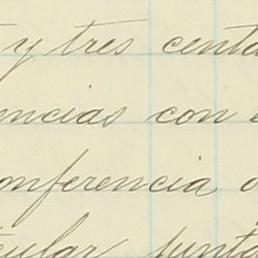 y tres centa
encias con
onferencia
cular junta